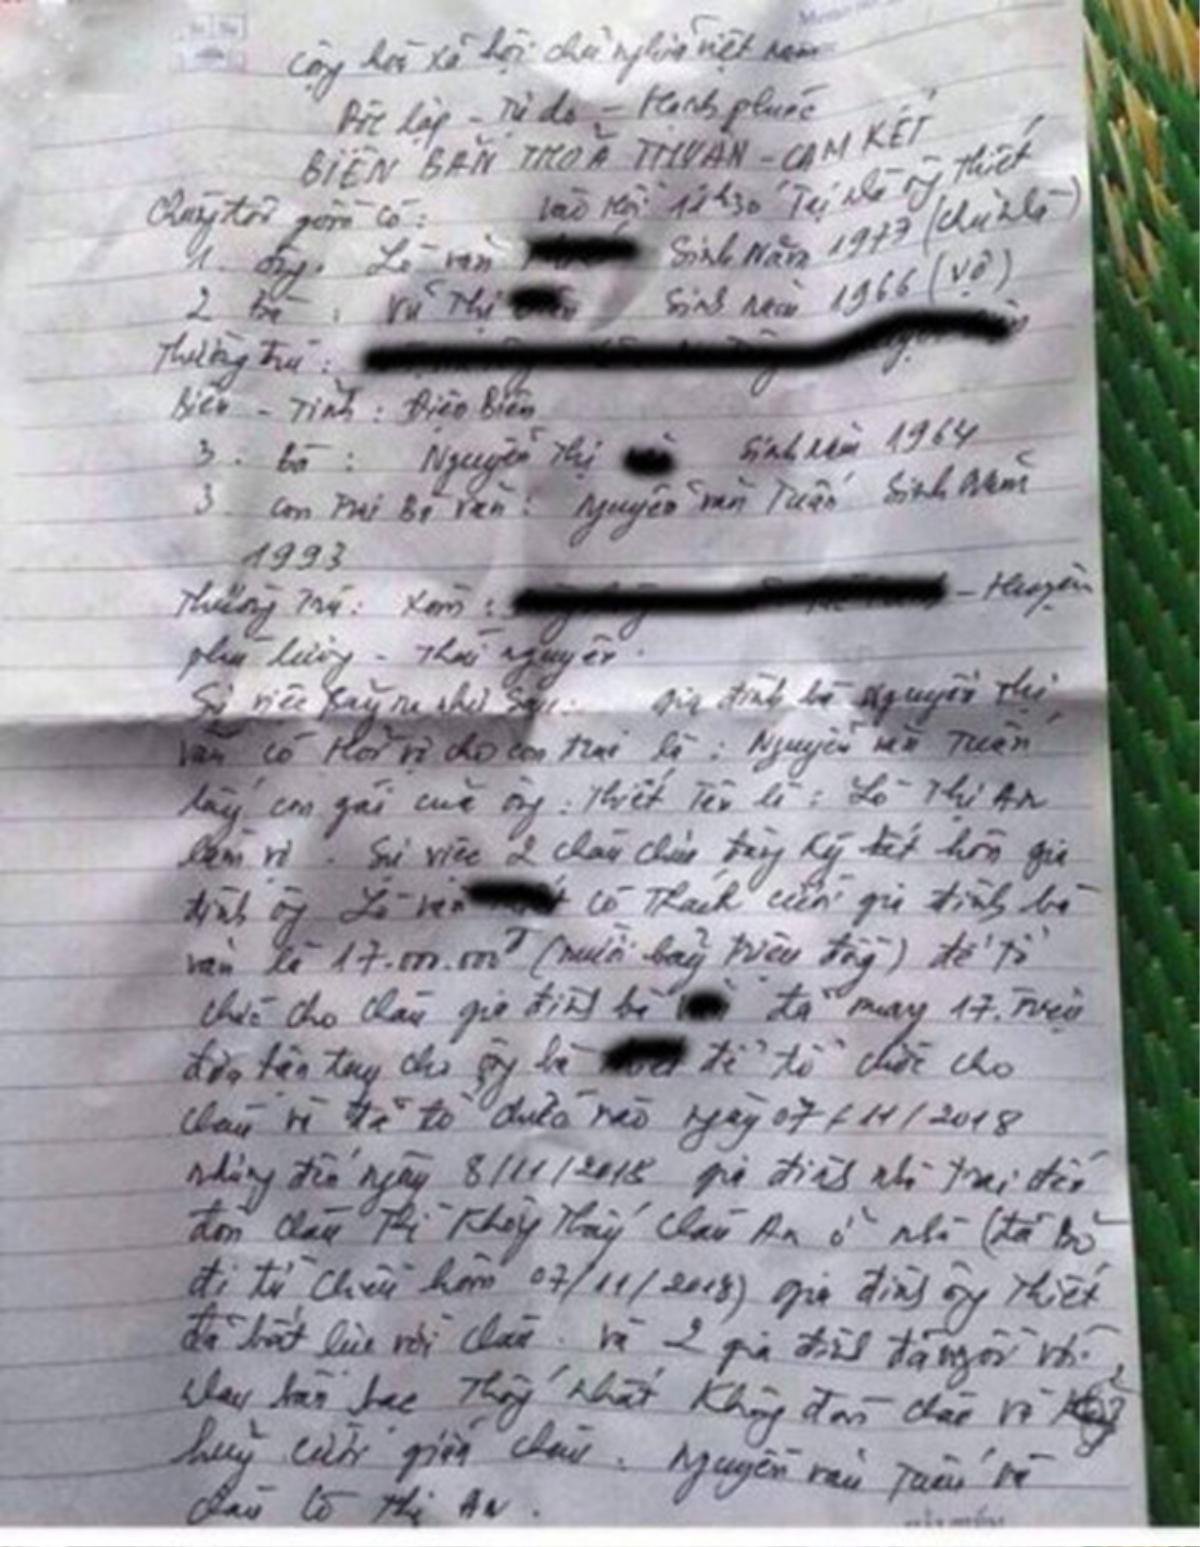 Cộng hoà xã hội chủ nghĩa việt nam
Độc lập - Tự do - Hạnh phúc
BIÊN BẢN THOẢ THUẬN - CAM KẾT
Chúng tôi gồm có: vào hồi 11h30 Tại nhà ông Thiết
1. ông. Lò văn Sinh Năm 1977 (chủ nhà)
2 bà : Vũ Thị Sinh năm 1966 (Vợ)
Thường trú :
Biên - Tỉnh : Điện Biên
3. bà : Nguyễn Thị Sinh năm 1964
3 con trai Bà Vân : Nguyễn văn Tuấn Sinh Năm
1993
Thường Trú: Xóm : - Huyện
phú lương - Thái nguyên.
Sự việc xảy ra như sau: gia đình bà Nguyễn Thị
Vân có Hỏi vợ cho con trai là : Nguyễn văn Tuấn
lấy con gái của ông : Thiết Tên là : Lò Thị An
làm vợ. Sự việc 2 cháu chưa đăng ký kết hôn gia
đình ông Lò văn có Thách cưới gia đình bà
vân là 17.000.000đ (mười bảy triệu đồng) để tổ
chức cho cháu gia đình bà đã mang 17. triệu
đưa tận tay cho ông bà để tổ chức cho
cháu và đã tổ chức vào ngày 07/11/2018
nhưng đến ngày 8/11/2018 gia đình nhà trai đến
đón cháu Thì Không Thấy cháu An ở nhà (đã Bỏ
đi từ chiều hôm 07/11/2018) gia đình ông Thiết
đã bất lực với cháu. và 2 gia đình đã ngồi với
nhau bàn bạc Thống nhất Không đón cháu về
huỷ cưới giữa cháu. Nguyễn văn Tuấn và
cháu Lò Thị An.